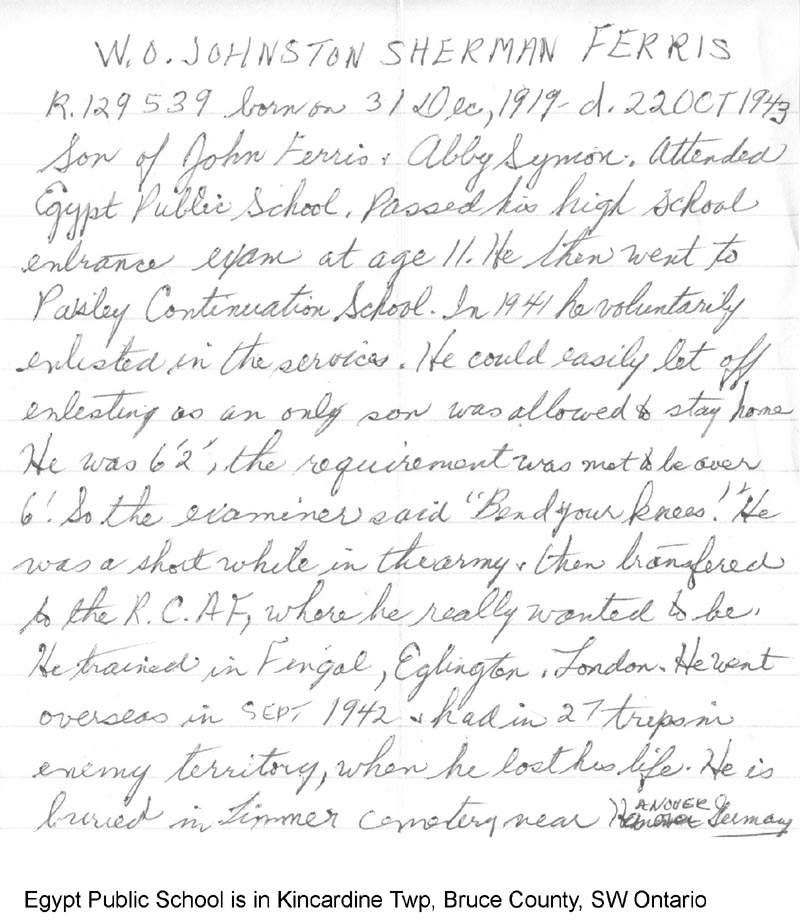 W.O. JOHNSTON SHERMAN FERRIS
R.129539 born on 31 Dec, 1919 - d. 22 OCT 1943
Son of John Ferris & Abby Symon. Attended
Egypt Public School. Passed his high school
entrance exam at age 11. He then went to
Paisley Continuation School. In 1941 he voluntarily
enlisted in the services. He could easily let off
enlesting as an only son was allowed to stay home
He was 6'2", the requirement was not to be over
6'. So the examiner said "Bend your knees!" He
was a short while in the army & then transfered
to the R.C.A.F, where he really wanted to be.
He trained in Fingal, Eglington, London. He went
overseas in SEPT 1942 & had in 27 trips in
enemy territory, when he lost his life. He is
buried in Limmer cemetery near HANOVER Germany
Egypt Public School is in Kincardine Twp, Bruce County, SW Ontario